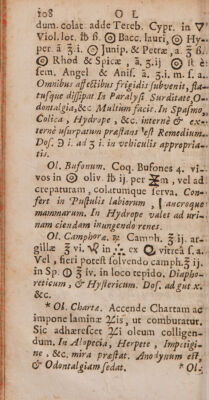 108 O L
dum. colat. adde Tereb. Cypr. in
Viol. lot. ℔ ß. Bacc. lauri, Hy-
per. ā ʒ.i. Junip. & Petræ, a. ʒ ß.
Rhod & Spicæ, ā ʒ.ij it
sem. Angel & Anis. ā. ʒ.i. m. s. a.
Omnibus affectibus frigidis subvenit, fla-
tusque dissipat In Paralysi Surditate, O-
dontalgia, &c. Multum facit. In Spasmo,
Colica, Hydrope, &c. internè & ex-
ternè usurpatum præstans est Remedium.
Dos. Ə i. ad ʒ i. in vehiculis appropria-
tis.
Ol. Bufonum. Coq. Bufones 4. vi-
vos in oliv. ℔ ij. per vel ad
crepaturam, colatumque serva. Con-
fert in Pustulis labiorum, ancroque
mammarum. In Hydrope valet ad uri-
nam ciendam inungendo renes.
Ol. Camphoræ. ℞ Camph. ʒ ij. ar-
gillæ ʒ vi. in ex vitrea s. a.
Vel, fieri potest solvendo camph. ʒ ij.
in Sp. ʒ iv. in loco tepido. Diapho-
reticum, & Hystericum. Dos. ad gut x.
&c.
* Ol. Chartæ. Accende Chartam ac
impone laminæ ut comburatur.
Sic adhærescet oleum colligen-
dum. In Alopecia, Herpete, Impetigi-
ne, &c. mira præstat. Anodynum est,
& Odontalgiam sedat. * Ol.